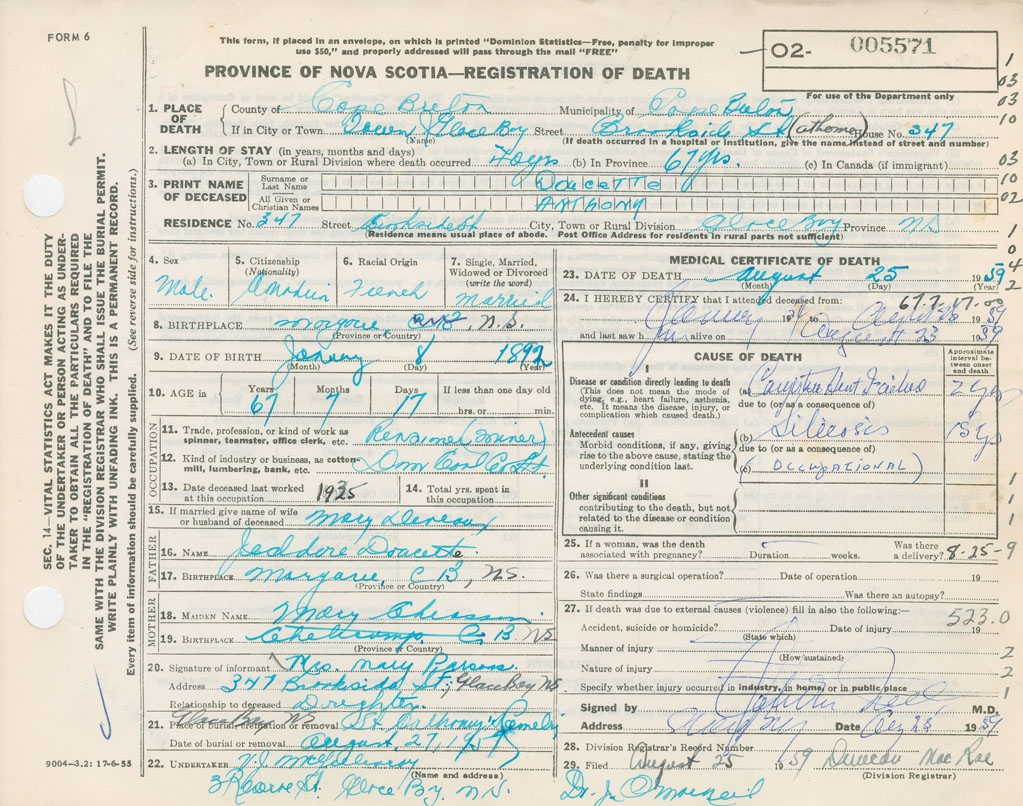 FORM 6
This form, if placed in an envelope, on which is printed "Dominion Statistics—Free, penalty for improper use $50," and properly addressed will pass through the mail "FREE"
02- 005571
For use of the Department only
PROVINCE OF NOVA SCOTIA—REGISTRATION OF DEATH
1. PLACE OF DEATH County of Cape Breton Municipality of Cape Breton
If in City or Town Glace Bay Street Brookside St (at home) House No. 347
(Name) (If death occurred in a hospital or institution, give the name instead of street and number)
2. LENGTH OF STAY (in years, months and days)
(a) In City, Town or Rural Division where death occurred 40 yrs (b) In Province 67 yrs. (c) In Canada (if immigrant)
3. PRINT NAME OF DECEASED Surname or Last Name Doucette
All Given or Christian Names Anthony
RESIDENCE No. 347 Street Brookside St City, Town or Rural Division Glace Bay Province NS
(Residence means usual place of abode. Post Office Address for residents in rural parts not sufficient)
1
03
03
10
03
10
02
1
0
4
2
SEC. 14—VITAL STATISTICS ACT MAKES IT THE DUTY
OF THE UNDERTAKER OR PERSON ACTING AS UNDER-
TAKER TO OBTAIN ALL THE PARTICULARS REQUIRED
IN THE "REGISTRATION OF DEATH" AND TO FILE THE
SAME WITH THE DIVISION REGISTRAR WHO SHALL ISSUE THE BURIAL PERMIT.
WRITE PLAINLY WITH UNFADING INK. THIS IS A PERMANENT RECORD.
Every item of information should be carefully supplied. (See reverse side for instructions.)
4. Sex Male
5. Citizenship (Nationality)
6. Racial Origin French
7. Single, Married, Widowed or Divorced (write the word) Married
8. BIRTHPLACE Margaree, N.S.
(Province or Country)
9. DATE OF BIRTH January 8 1892
(Month) (Day) (Year)
10. AGE in Years 67 Months 7 Days 17 If less than one day old hrs. or min.
OCCUPATION
11. Trade, profession, or kind of work as spinner, teamster, office clerk, etc. Pensioned (miner)
12. Kind of industry or business, as cotton-mill, lumbering, bank, etc. Dom Coal Co Ltd.
13. Date deceased last worked at this occupation 1935
14. Total yrs. spent in this occupation
15. If married give name of wife or husband of deceased Mary
FATHER
16. NAME Doucette
17. BIRTHPLACE Margaree, C B, N.S.
(Province or Country)
MOTHER
18. MAIDEN NAME Mary
19. BIRTHPLACE Cheticamp C. B NS
(Province or Country)
20. Signature of informant Mrs. Mary Parsons
Address 347 Brookside St., Glace Bay NS
Relationship to deceased Daughter
21. Glace Bay NS
Place of burial, cremation or removal St Anthony's
Date of burial or removal August 27, 1959
22. UNDERTAKER V.J. McGillivray
(Name and address)
3 Reserve St. Glace Bay. N.S.
9004—3.2: 17-6-55
MEDICAL CERTIFICATE OF DEATH
23. DATE OF DEATH August 25 1959
(Month) (Day) (Year)
67.7.17.00
24. I HEREBY CERTIFY that I attended deceased from:
January 19 to Aug 25 1959
and last saw h im alive on August 23 1959
CAUSE OF DEATH
Approximate interval between onset and death
I
Disease or condition directly leading to death
(This does not mean the mode of dying, e.g., heart failure, asthenia, etc. It means the disease, injury, or complication which caused death.)
(a) Congestive Heart Failure 2 yrs
due to (or as a consequence of)
Antecedent causes
Morbid conditions, if any, giving rise to the above cause, stating the underlying condition last.
(b) Silicosis 15 yrs
due to (or as a consequence of)
(c) (OCCUPATIONAL)
II
Other significant conditions contributing to the death, but not related to the disease or condition causing it.
1
1
1
25. If a woman, was the death associated with pregnancy? Duration weeks. Was there a delivery? 8-25-9
26. Was there a surgical operation? Date of operation 19
State findings Was there an autopsy?
27. If death was due to external causes (violence) fill in also the following:— 523.0
Accident, suicide or homicide? Date of injury 19
(State which)
Manner of injury 2
(How sustained)
Nature of injury 2
Specify whether injury occurred in industry, in home, or in public place 1
Signed by M.D.
Address Date Aug 25 1959
28. Division Registrar's Record Number
29. Filed August 25 1959 Duncan MacRae
(Division Registrar)